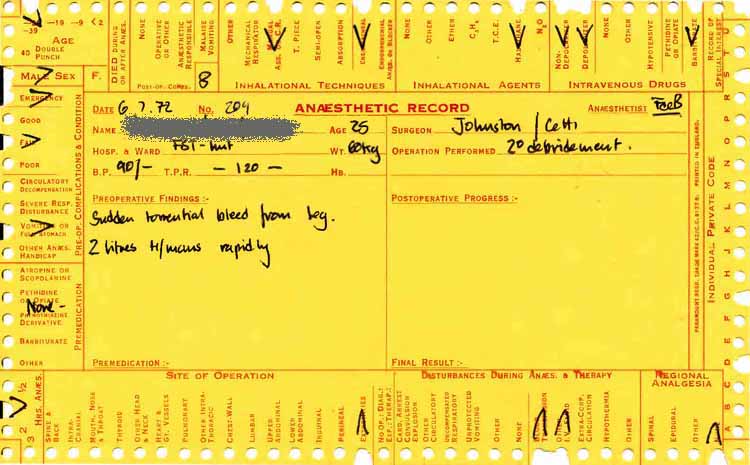 -39 -19 -9 <2
AGE
DOUBLE PUNCH
MALE SEX F.
DIED DURING OR AFTER ANÆS.
NONE
OPERATIVE OR OTHER
ANÆSTHETIC RESPONSIBLE
MALAISE VOMITING
OTHER
MECHANICAL RESPIRATOR
T. PIECE
SEMI-OPEN
ABSORPTION
NONE
OTHER
ETHER
C₃H₆
T.C.E.
N₂O
NON-DEPOLARIZER
DEPOLARIZER
OTHER
NONE
HYPOTENSIVE
PETHIDINE OR OPIATE
BARBITURATE
RECORD OF SPECIAL INTEREST
POST-OP. COMBS. 8
INHALATIONAL TECHNIQUES
INHALATIONAL AGENTS
INTRAVENOUS DRUGS
EMERGENCY
GOOD
FAIR
POOR
CIRCULATORY DECOMPENSATION
SEVERE RESP. DISTURBANCE
VOMITING OR FULL STOMACH
OTHER ANÆS. HANDICAP
PRE-OP. COMPLICATIONS & CONDITION
ATROPINE OR SCOPOLAMINE
PETHIDINE OR OPIATE
None -
PHENOTHIAZINE DERIVATIVE
BARBITURATE
OTHER
PREMEDICATION
DATE 6.7.72 NO. 204 ANÆSTHETIC RECORD ANÆSTHETIST
NAME AGE 25 SURGEON Johnston / Cetti
HOSP. & WARD WT. 60kg OPERATION PERFORMED 2° debridement.
B.P. 90/- T.P.R. - 120 - HB.
PREOPERATIVE FINDINGS :- POSTOPERATIVE PROGRESS :-
Sudden torrential bleed from leg.
2 litres H/mans rapidly
PREMEDICATION :- FINAL RESULT :-
INDIVIDUAL PRIVATE CODE
PRINTED IN ENGLAND.
SITE OF OPERATION
DISTURBANCES DURING ANÆS. & THERAPY
REGIONAL ANALGESIA
HRS. ANÆS.
½
2
3
SPINE & BACK
INTRA-CRANIAL
MOUTH, NOSE & THROAT
THYROID
OTHER HEAD & NECK
HEART & GT. VESSELS
PULMONARY
OTHER INTRA-THORACIC
CHEST-WALL
LUMBAR
UPPER ABDOMINAL
LOWER ABDOMINAL
INGUINAL
PERINEAL
CARD. ARREST CONVULSION EXPLOSION
OTHER CIRCULATORY
UNCOMPENSATED RESPIRATORY
UNPROTECTED VOMITING
OTHER
NONE
EXTRA-CORP. CIRCULATION
HYPOTHERMIA
OTHER
SPINAL
EPIDURAL
OTHER
A B C